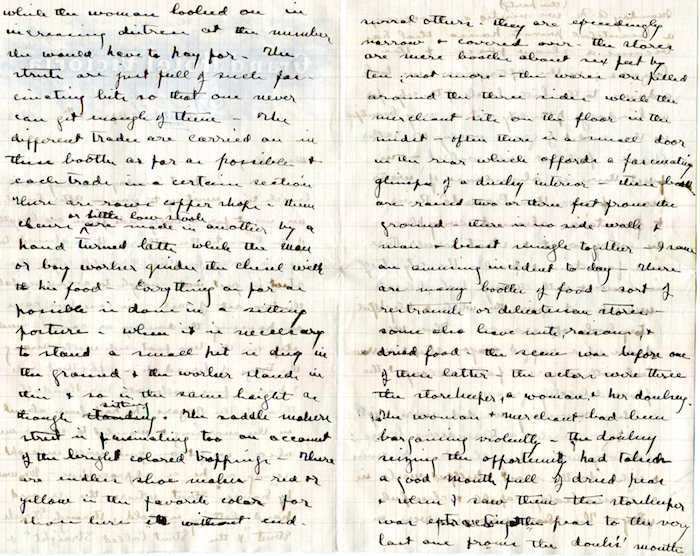 while the woman looked on in
increasing distress at the number
she would have to pay for. The
streets are just full of such fas-
cinating bits so that one never
can get enough of them - The
different trades are carried on in
these booths as far as possible &
each trade in a certain section
There are rows copper shops - then
chairs or little low stools are made in another by a
hand turned lathe while the man
or boy worker guides the chisel with
his foot Everything as far as
possible is done in a sitting
posture - when it is necessary
to stand a small pit is dug in
the ground & the worker stands in
this & so in the same height as
though standing sitting. The saddle makers
street is fascinating too on account
of the bright colored trappings - There
are endless shoe makers - red &
yellow is the favorite color for
shoes here without end.
several others - they are exceedingly
narrow & covered over - the stores
are mere booths about six feet by
ten, not more - the wares are piled
around the three sides while the
merchant sits on the floor in the
midst - often there is a small door
in the rear which affords a fascinating
glimpse of a dusky interior - these booths
are raised two or three feet from the
ground - there is no side walk &
man & beast mingle together - I saw
an amusing incident to day - There
are many booths of food sort of
restaurants or delicatessen stores -
some also have nuts, raisins, &
dried food - the scene was before one
of these latter - the actors were three
the storekeeper, a woman, & her donkey.
The woman & merchant had been
bargaining violently - the donkey
seizing the opportunity had taken
a good mouth full of dried peas
& when I saw them the storekeeper
was extracting the peas to the very
last one from the donks' mouth
Grand Hotel Victoria